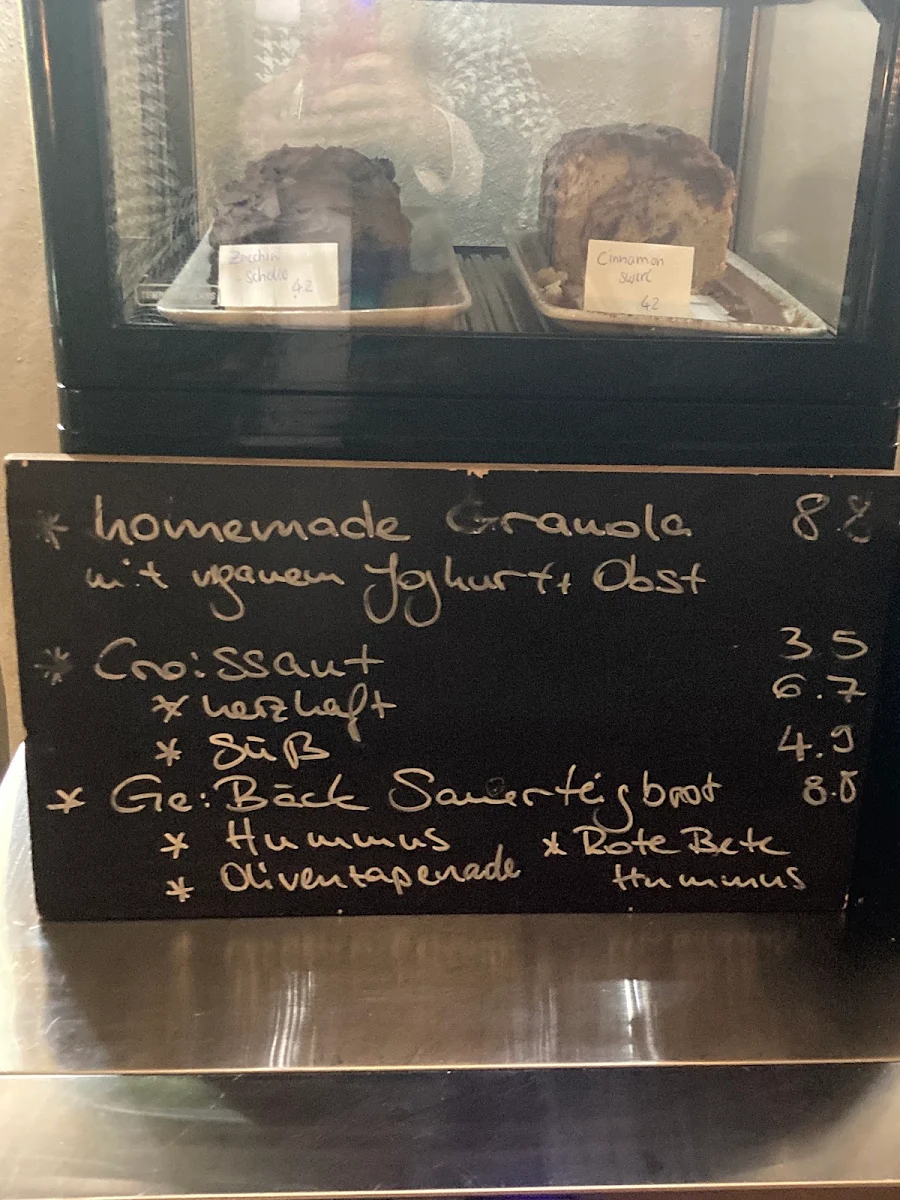 Zucchini
scholo 4.2
Cinnamon
swirl
42
* homemade Granola 8.8
mit veganem Joghurt + Obst
* Croissant 3 5
* herzhaft 6.7
* Süß 4.9
* Ge:Bäck Sauerteigbrot 8.8
* Hummus * Rote Bete
* Oliventapenade Hummus